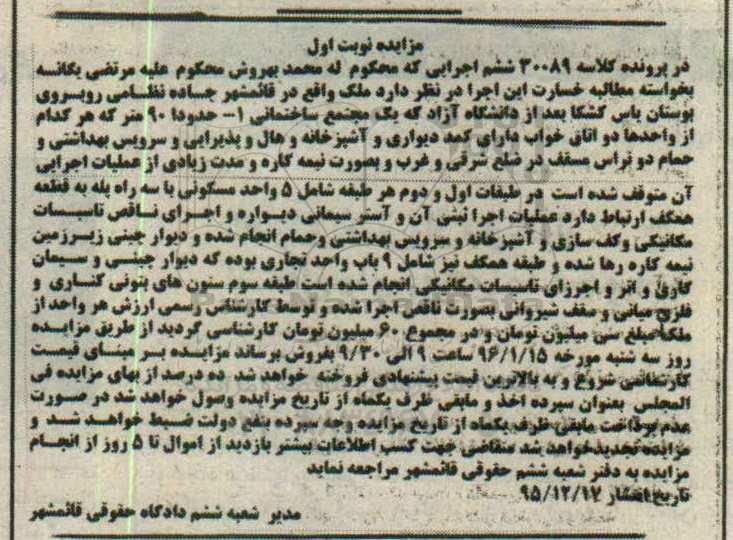 مزایده نوبت اول
در پرونده کلاسه ۳۰۰۸۹ ششم اجرایی که محکوم له محمد بهروش محکوم علیه مرتضی یگانه
بخواسته مطالبه خسارت این اجرا در نظر دارد ملک واقع در قائمشهر جساده نظـامی روبـروی
بوستان یاس کشکا بعد از دانشگاه آزاد که یک مجتمع ساختمانی ۱- حدودا ۹۰ متر که هر کدام
از واحدها دو اتاق خواب دارای کمد دیواری و آشپزخانه و هال و پذیرایی و سرویس بهداشتی و
حمام دو تراس مسقف در ضلع شرقی و غرب و بصورت نیمه کاره و مدت زیادی از عملیات اجرایی
آن متوقف شده است در طبقات اول و دوم هر طبقه شامل ۵ واحد مسکونی با سه راه پله به قطعه
همکف ارتباط دارد عملیات اجرا ثبتی آن و آستر سیمانی دیـواره و اجـرای نـاقص تاسیسات
مکانیکی وکف سازی و آشپزخانه و سرویس بهداشتی وحمام انجام شده و دیوار چینی زیـرزمین
نیمه کاره رها شده و طبقه همکف نیز شامل ۹ باب واحد تجاری بوده که دیوار چینـی و سـیمان
کاری و اثر و اجرزای تاسیسات مکانیکی انجام شده است طبقه سوم ستون های بتونی کنـاری و
فلزی میانی و سقف شیروانی بصورت ناقص اجرا شده و توسط کارشناس رسمی ارزش هر واحد از
ملک مبلغ سی میلیون تومان و در مجموع ۶۰ میلیون تومان کارشناسی گردید از طریق مزایـده
روز سه شنبه مورخه ۹۶/۱/۱۵ ساعت ۹ الی ۹/۳۰ بفروش برساند مزایـده بـر مبنـای قیمـت
کارشناسی شروع و به بالاترین قیمت پیشنهادی فروخته خواهد شد ده درصد از بهای مزایده فی
المجلس بعنوان سپرده اخذ و مابقی ظرف یکماه از تاریخ مزایده وصول خواهد شد در صـورت
عدم پرداخت مابقی ظرف یکماه از تاریخ مزایده وجه سپرده بنفع دولت ضبط خواهـد شـد و
مزایده تجدیدخواهد شد متقاضی جهت کسب اطلاعات بیشتر بازدید از اموال تا ۵ روز از انجـام
مزایده به دفتر شعبه ششم حقوقی قائمشهر مراجعه نماید
تاریخ انتشار ۹۵/۱۲/۱۷
مدیر شعبه ششم دادگاه حقوقی قائمشهر